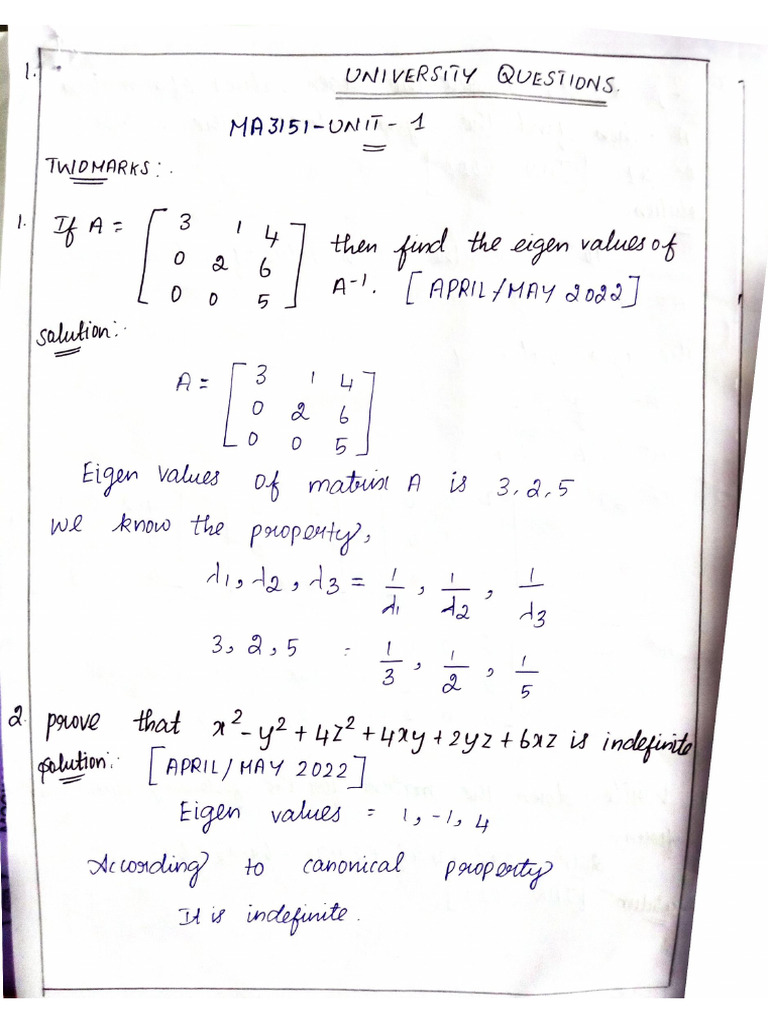 1.
UNIVERSITY QUESTIONS.
MA3151-UNIT-1
TWOMARKS:.
1. If A = [ 3 1 4
0 2 6
0 0 5 ] then find the eigen values of
A⁻¹. [APRIL/MAY 2022]
solution:.
A = [ 3 1 4
0 2 6
0 0 5 ]
Eigen values of matrix A is 3, 2, 5
we know the property,
λ1, λ2, λ3 = 1/λ1, 1/λ2, 1/λ3
3, 2, 5 = 1/3, 1/2, 1/5
2. prove that x² - y² + 4z² + 4xy + 2yz + 6xz is indefinite
solution:. [APRIL/MAY 2022]
Eigen values = 1, -1, 4
According to canonical property
It is indefinite.